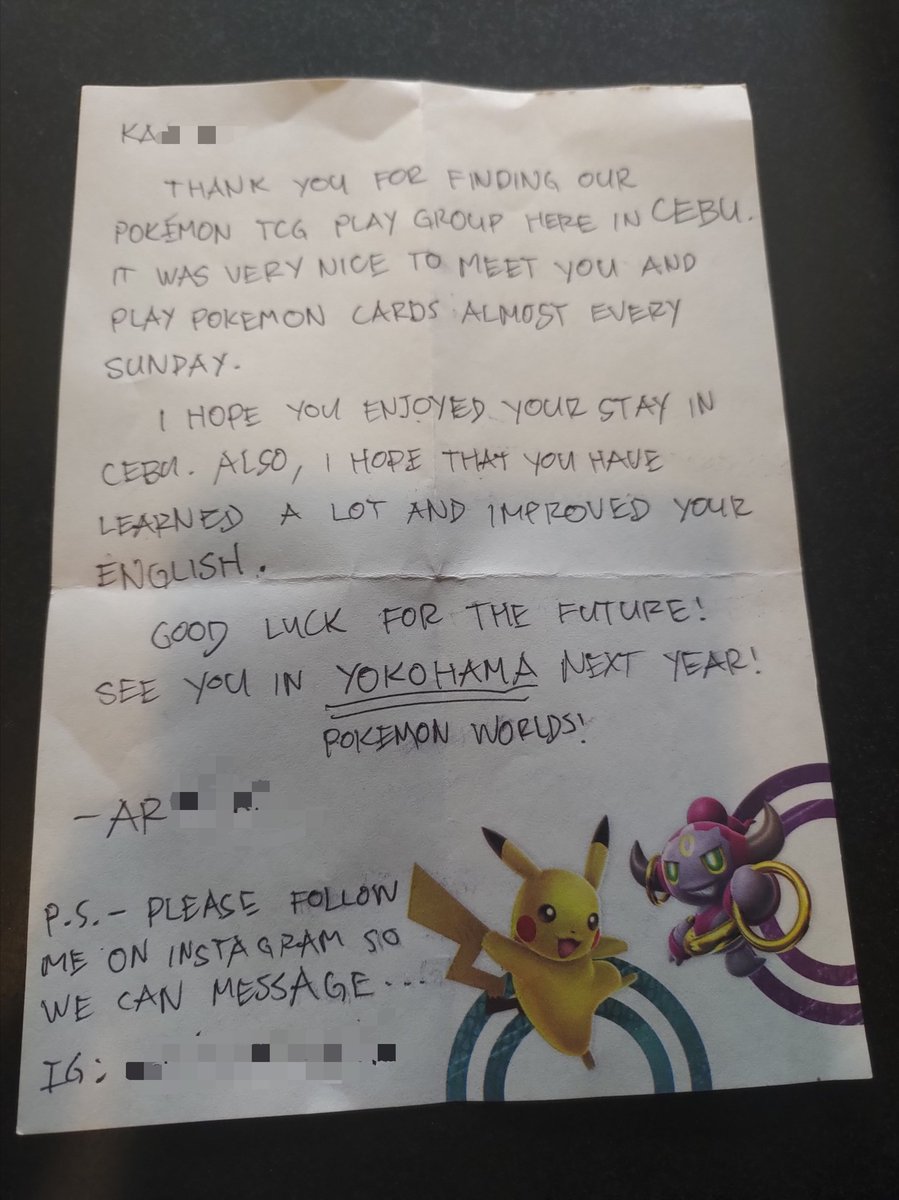 KA
THANK YOU FOR FINDING OUR
POKÉMON TCG PLAY GROUP HERE IN CEBU.
IT WAS VERY NICE TO MEET YOU AND
PLAY POKEMON CARDS ALMOST EVERY
SUNDAY.
I HOPE YOU ENJOYED YOUR STAY IN
CEBU. ALSO, I HOPE THAT YOU HAVE
LEARNED A LOT AND IMPROVED YOUR
ENGLISH.
GOOD LUCK FOR THE FUTURE!
SEE YOU IN YOKOHAMA NEXT YEAR!
POKEMON WORLDS!
-AR
P.S.- PLEASE FOLLOW
ME ON INSTAGRAM SO
WE CAN MESSAGE...
IG: